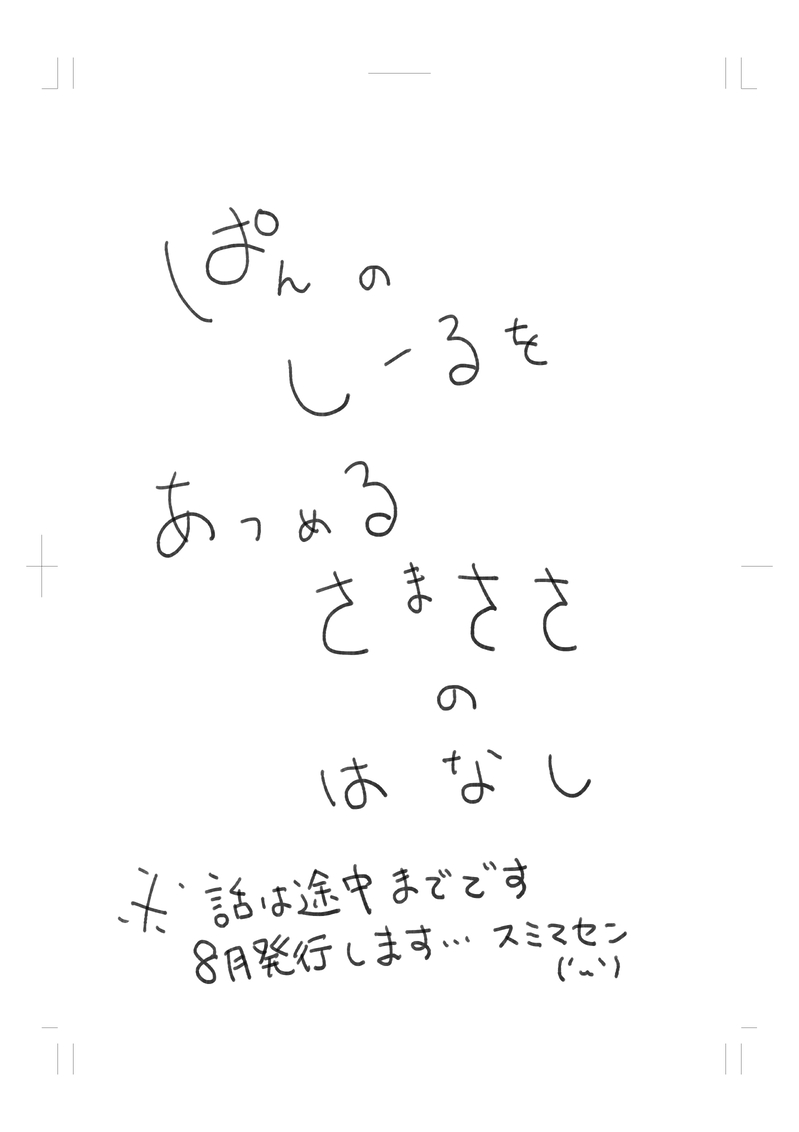 ぱんの
しーるを
あつめる
さまささ
の
はなし
※ 話は途中までです
8月発行します… スミマセン
(´ω`)